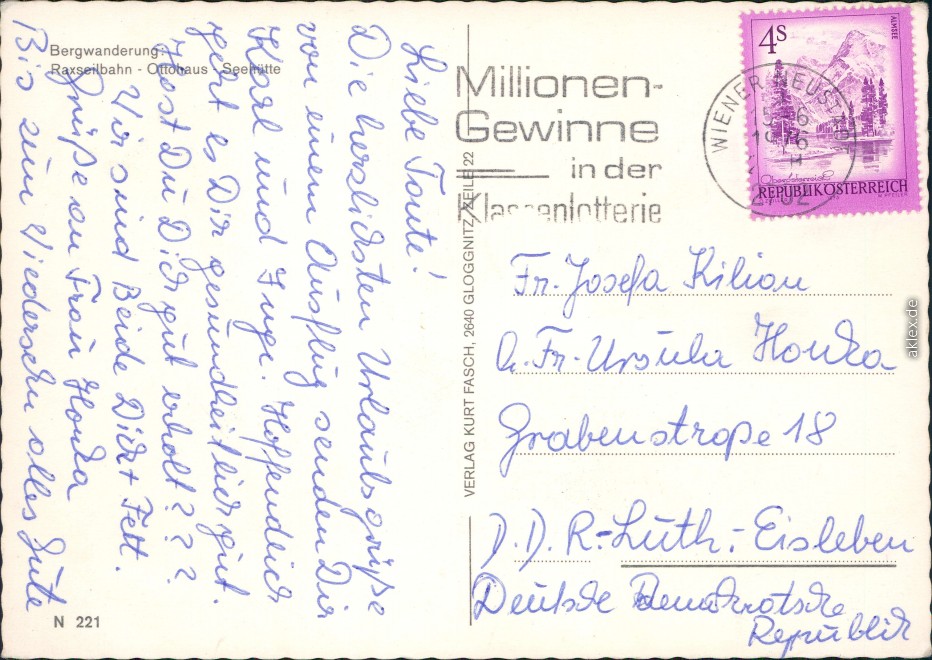 Bergwanderung:
Raxseilbahn - Ottohaus - Seehütte
Liebe Tante!
Die herzlichsten Urlaubsgrüße
von einem Ausflug senden Dir
Karl und Inge. Hoffendlich
geht es Dir gesundheitlich gut.
Hast Du Dich gut erholt???
Wir sind Beide Dick + Fett.
Grüße an Frau Honka
Bis zum Viedersehn alles Gute
N 221
VERLAG KURT FASCH, 2640 GLOGGNITZ, ZEILE 22
Millionen-
Gewinne
in der
Klassenlotterie
WIENER NEUSTADT
2702
4 S
ALMSEE
Oberösterreich
REPUBLIK ÖSTERREICH
Fr. Josefa Kilian
b. Fr. Ursula Honka
Grabenstraße 18
D.D.R.-Luth.-Eisleben
Deutsche Demokratsche
Republick
aklex.de